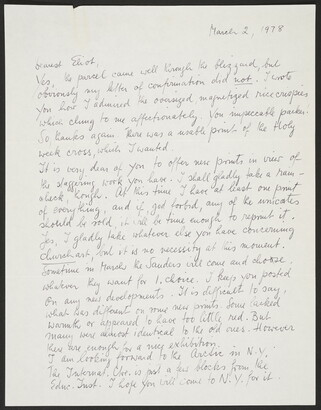 March 2, 1978
Dearest Eliot,
Yes, the parcel came well through the blizzard, but
obviously my letter of confirmation did not. I wrote
you how I admired the oversized magnetized rice crispies
which clung to me affectionately. You impeccable packer.
So thanks again. There was a usable print of the Holy
week cross, which I wanted.
It is very dear of you to offer new prints in view of
the staggering work you have. I shall gladly take a rain-
check, though. At this time I have at least one print
of everything, and if, god forbid, any of the unicates
should be sold, it will be time enough to reprint it.
Yes, I gladly take whatever else you have concerning
churches, but it is no necessity at this moment.
Sometime in March the Sanders will come and choose
whatever they want for 1. choice. I keep you posted
on any new developments. It is difficult to say,
what was different on some new prints. Some lacked
warmth or appeared to have too little red. But
many were almost identical to the old ones. However
there are enough for a nice exhibition.
I am looking forward to the Arctic in N.Y.
The Internat. Ctr. is just a few blocks from the
Educ. Inst. I hope you will come to N.Y. for it.